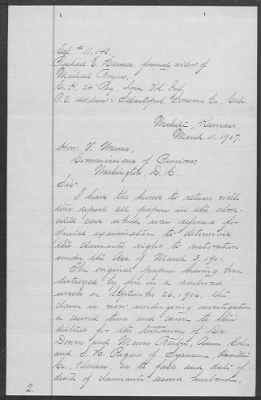 1
Rachael E. Harmer, former widow of
Michael Rogers,
P.O. address: Sebastopol, Sonoma Co., Cala.
Kansas,
March 11, 1907.
Hon. V. Warner,
Commissioner of Pensions,
Washington, D.C.
Sir:
I have the honor to return with
this report all papers in the above
case which was referred for
special examination to determine
the claimant's right to restoration
under the Act of March 3, 1901.
The original papers having been
destroyed by fire in a railroad
wreck on September 26, 1906, this
claim is now undergoing investigation
a second time and came to this
district for the testimony of
and
and Rogers of Syracuse, Hamilton
Co., Kansas, as to fact and date of
death of claimant's second husband,
2.